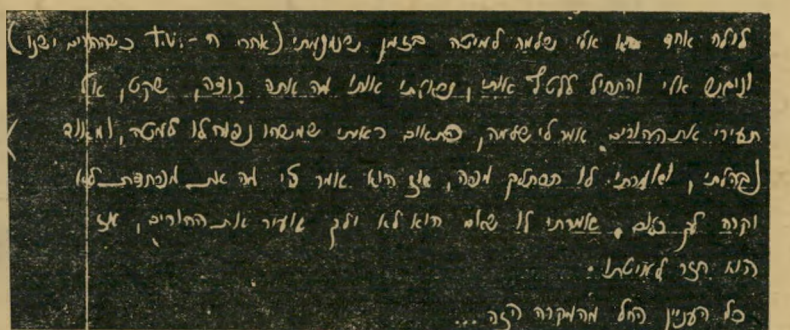 לילה אחד בא אלי שלמה למיטה בזמן שנמנמתי (אחרי ה - .T.V כשההורים ישנו)
וניגש אלי והתחיל ללטף אותי, ושאלתי אותו מה אתה רוצה, שקט, אל
תעירי את ההורים. אומר לי שלמה, פתאום ראיתי שמשהו נפוח לו למטה, ומאוד
נבהלתי, ואמרתי לו תסתלק מפה, אז הוא אומר לי מה את מפחדת לא
יקרה לך כלום. אמרתי לו שאם הוא לא ילך אעיר את ההורים, אז
הוא חזר למיטתו.
כל העניין החל מהמקרה הזה...